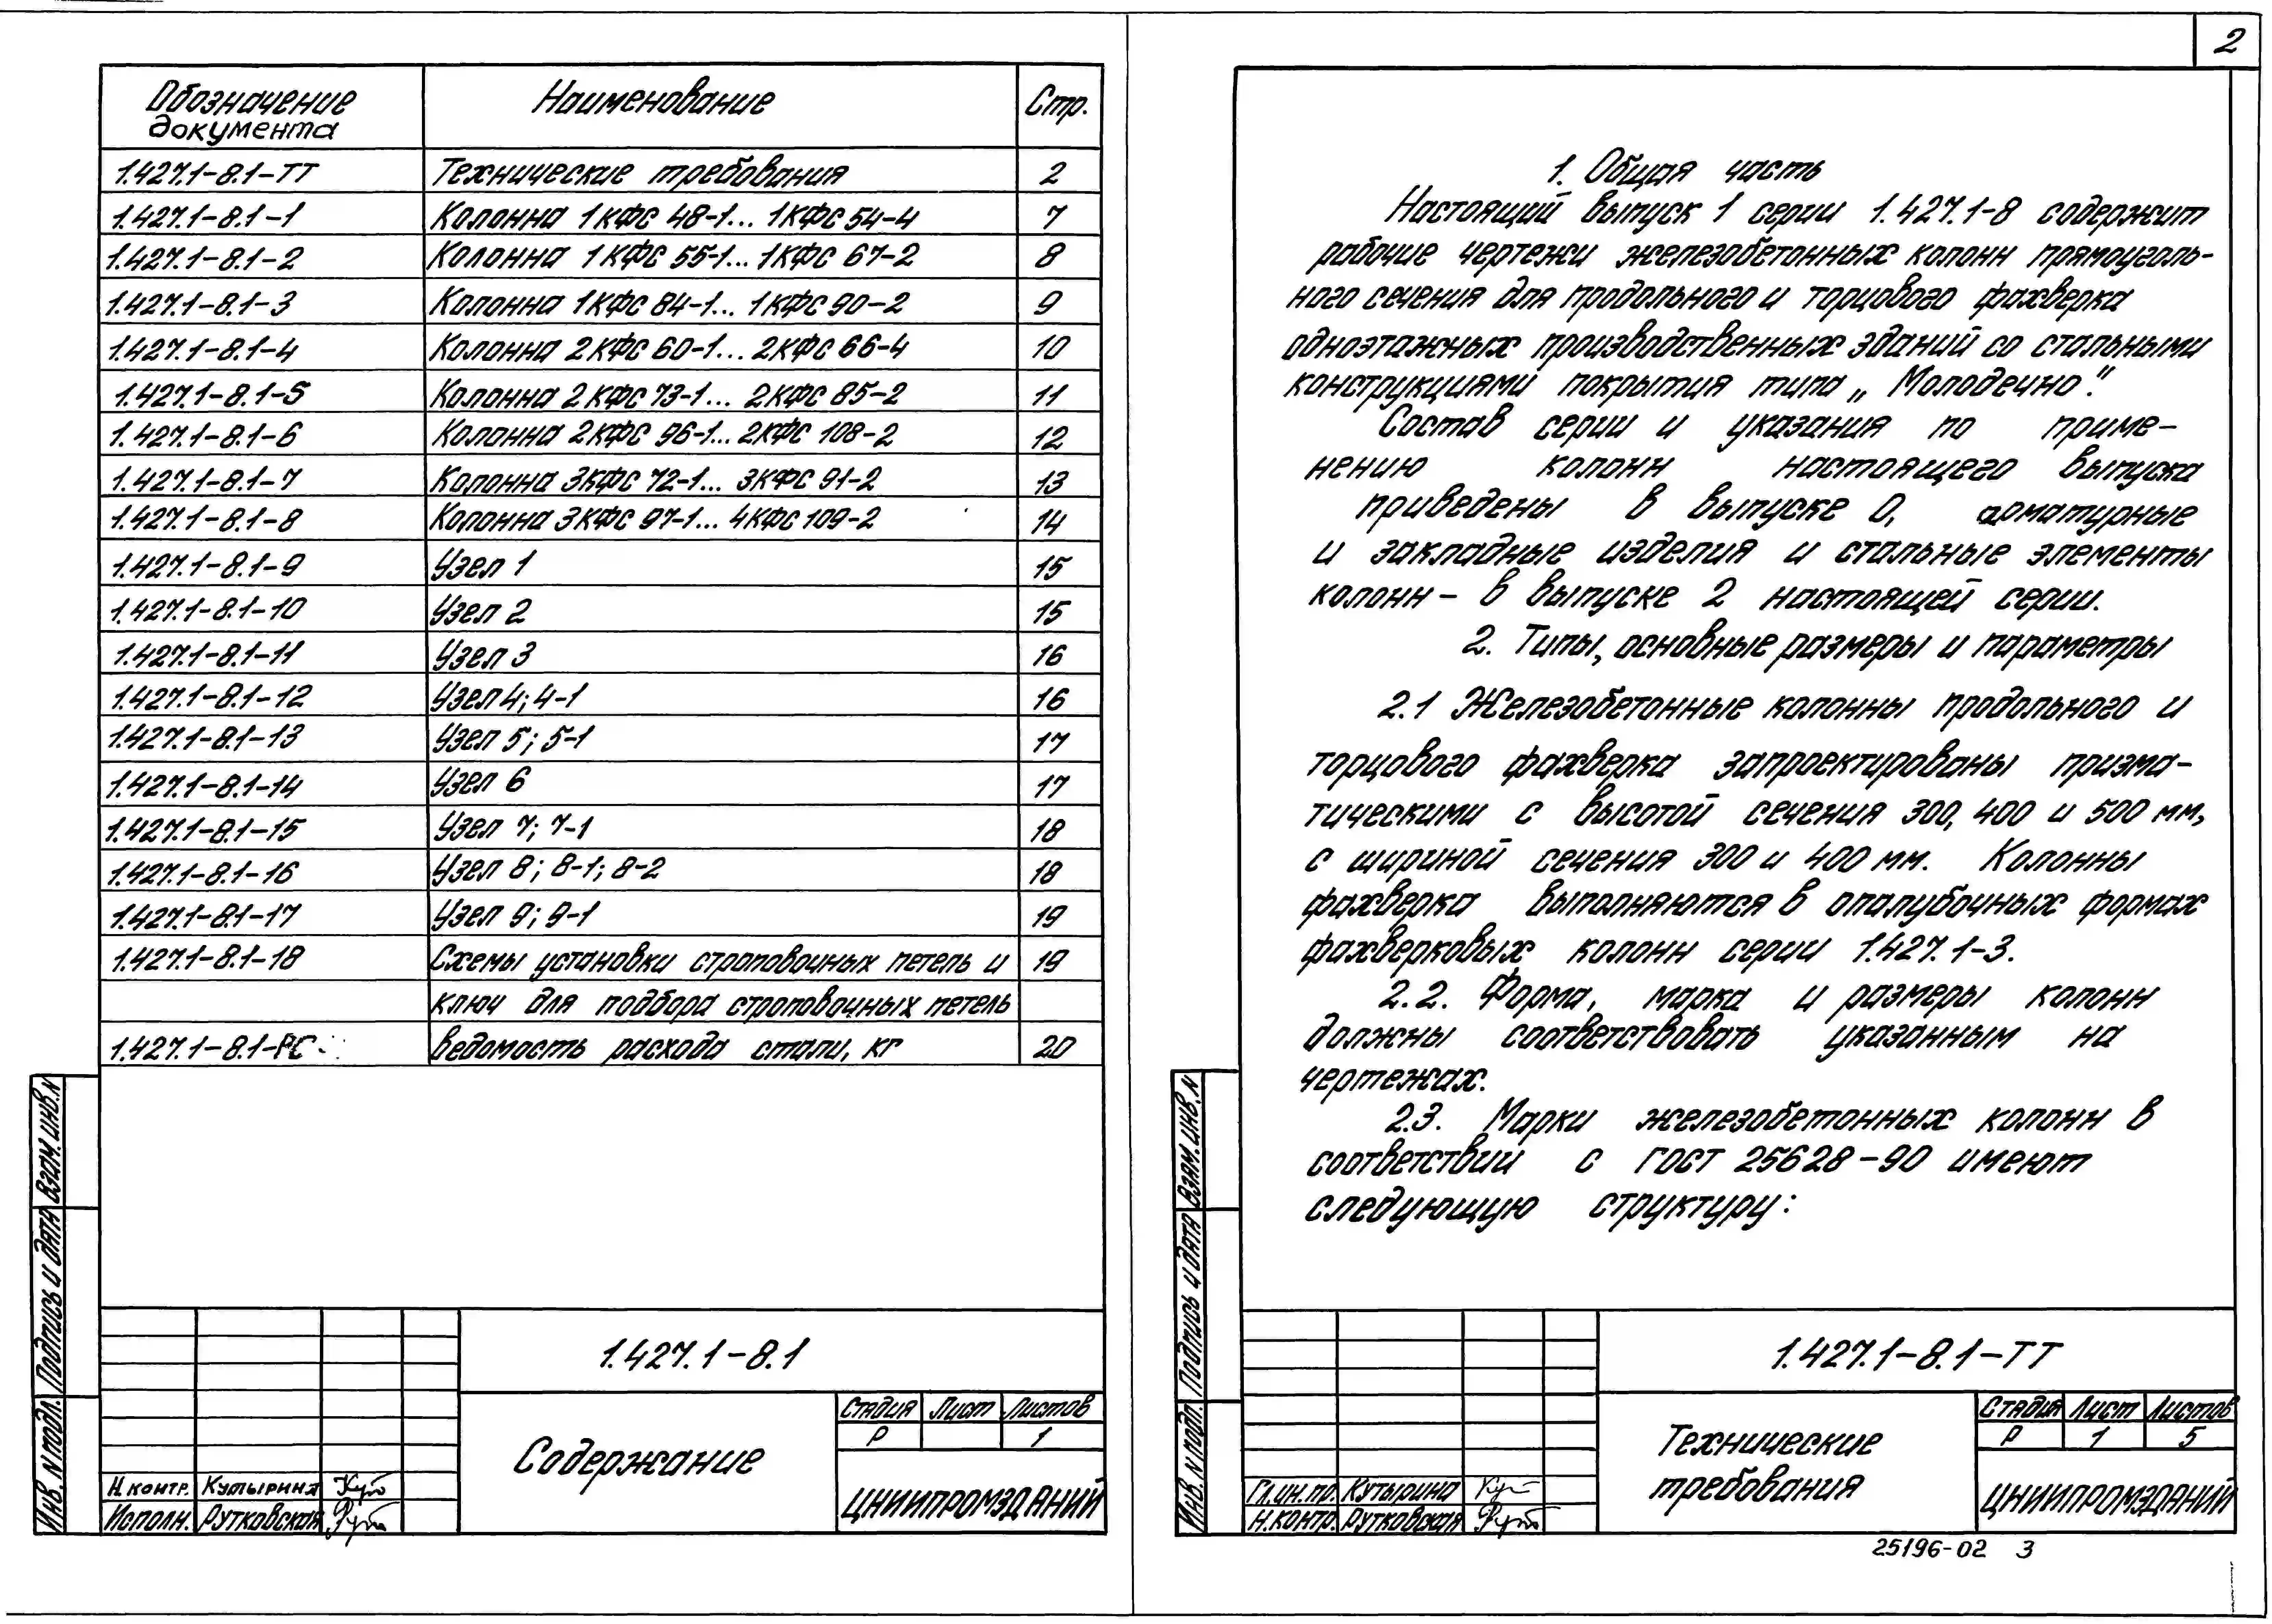 Обозначение документа Наименование Стр.
1.427.1-8.1-ТТ Технические требования 2
1.427.1-8.1-1 Колонна 1КФС 48-1... 1КФС 54-4 7
1.427.1-8.1-2 Колонна 1КФС 55-1... 1КФС 67-2 8
1.427.1-8.1-3 Колонна 1КФС 84-1... 1КФС 90-2 9
1.427.1-8.1-4 Колонна 2КФС 60-1... 2КФС 66-4 10
1.427.1-8.1-5 Колонна 2КФС 73-1... 2КФС 85-2 11
1.427.1-8.1-6 Колонна 2КФС 96-1... 2КФС 108-2 12
1.427.1-8.1-7 Колонна 3КФС 72-1... 3КФС 91-2 13
1.427.1-8.1-8 Колонна 3КФС 97-1... 4КФС 109-2 14
1.427.1-8.1-9 Узел 1 15
1.427.1-8.1-10 Узел 2 15
1.427.1-8.1-11 Узел 3 16
1.427.1-8.1-12 Узел 4; 4-1 16
1.427.1-8.1-13 Узел 5; 5-1 17
1.427.1-8.1-14 Узел 6 17
1.427.1-8.1-15 Узел 7; 7-1 18
1.427.1-8.1-16 Узел 8; 8-1; 8-2 18
1.427.1-8.1-17 Узел 9; 9-1 19
1.427.1-8.1-18 Схемы установки строповочных петель и 19
ключ для подбора строповочных петель
1.427.1-8.1-РС Ведомость расхода стали, кг 20
Взам. инв. N
Подпись и дата
Инв. N подл.
1.427.1-8.1
Содержание
Стадия Лист Листов
Р 1
ЦНИИПРОМЗДАНИЙ
Н. контр. Кутырина Кут
Исполн. Рутковская Рут
2
1. Общая часть
Настоящий выпуск 1 серии 1.427.1-8 содержит
рабочие чертежи железобетонных колонн прямоуголь-
ного сечения для продольного и торцового фахверка
одноэтажных производственных зданий со стальными
конструкциями покрытия типа „Молодечно".
Состав серии и указания по приме-
нению колонн настоящего выпуска
приведены в выпуске 0, арматурные
и закладные изделия и стальные элементы
колонн - в выпуске 2 настоящей серии.
2. Типы, основные размеры и параметры
2.1 Железобетонные колонны продольного и
торцового фахверка запроектированы призма-
тическими с высотой сечения 300, 400 и 500 мм,
с шириной сечения 300 и 400 мм. Колонны
фахверка выполняются в опалубочных формах
фахверковых колонн серии 1.427.1-3.
2.2. Форма, марка и размеры колонн
должны соответствовать указанным на
чертежах.
2.3. Марки железобетонных колонн в
соответствии с ГОСТ 25628-90 имеют
следующую структуру:
Взам. инв. N
Подпись и дата
Инв. N подл.
1.427.1-8.1-ТТ
Технические
требования
Стадия Лист Листов
Р 1 5
ЦНИИПРОМЗДАНИЙ
Гл. ин. пр. Кутырина Кут
Н. контр. Рутковская Рут
25196-02 3